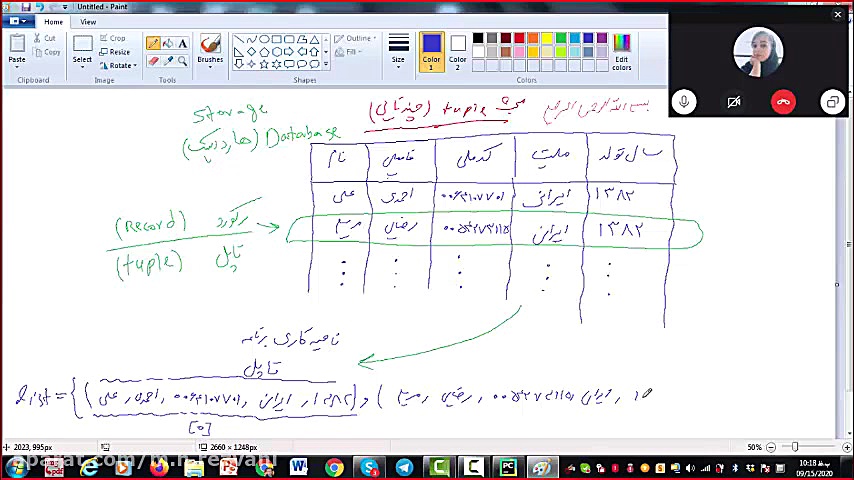 Untitled - Paint
Home View
Paste
Cut
Copy
Clipboard
Select
Crop
Resize
Rotate
Image
Brushes
Tools
Outline
Fill
Shapes
Size
Color 1
Color 2
Colors
Edit colors
بسم الله الرحمن الرحیم
مبحث tuple (چندتایی)
Storage
Database (هارد دیسک)
نام فامیلی کدملی ملیت سال تولد
علی احمدی ایرانی ۱۳۸۲
مریم رضایی ایرانی ۱۳۸۲
رکورد (record)
تاپل (tuple)
ناحیه کاری برنامه
تاپل
list = {(علی, احمدی, ایرانی, ۱۳۸۲), (مریم, رضایی, ایرانی,
[0]
2023, 995px
2660 × 1248px
50%
aparat.com/m.h.rezvani
10:18 ب.ظ
09/15/2020